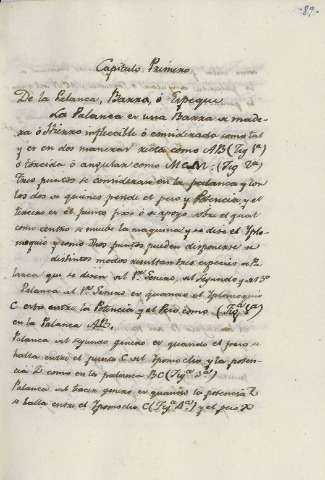 -89-
Capitulo Primero
De la Palanca, Barra, ó Espeque
La Palanca es una Barra de made-
ra ó Hierro inflexible ó considerada como tal
y es en dos maneras recta como AB (Fig 1ª)
ó torcida ó angular como MCN. (Fig 2ª)
Tres puntos se consideran en la palanca y son
los dos de quienes pende el peso y Potencia y el
tercero es el punto fixo ó de apoyo sobre el qual
como centro se muebe la maquina y se dice el Ypo-
moquio y como Tres puntos pueden disponerse de
distintos modos resultan tres especies de Pa-
lanca que se dicen del 1º Genero, del segundo y del 3º
Palanca del 1º Genero es quando el Ypomoquio
C esta entre la Potencia y el Peso como (Figª 1ª)
en la Palanca AB.
Palanca del segundo genero es quando el peso se
halla entre el punto C del Ypomoclio y la poten-
cia D como en la palanca BC (Figª 3ª)
Palanca del tercer genero es quando la potencia
se halla entre el Ypomoclio C (Figª 4ª) y el peso